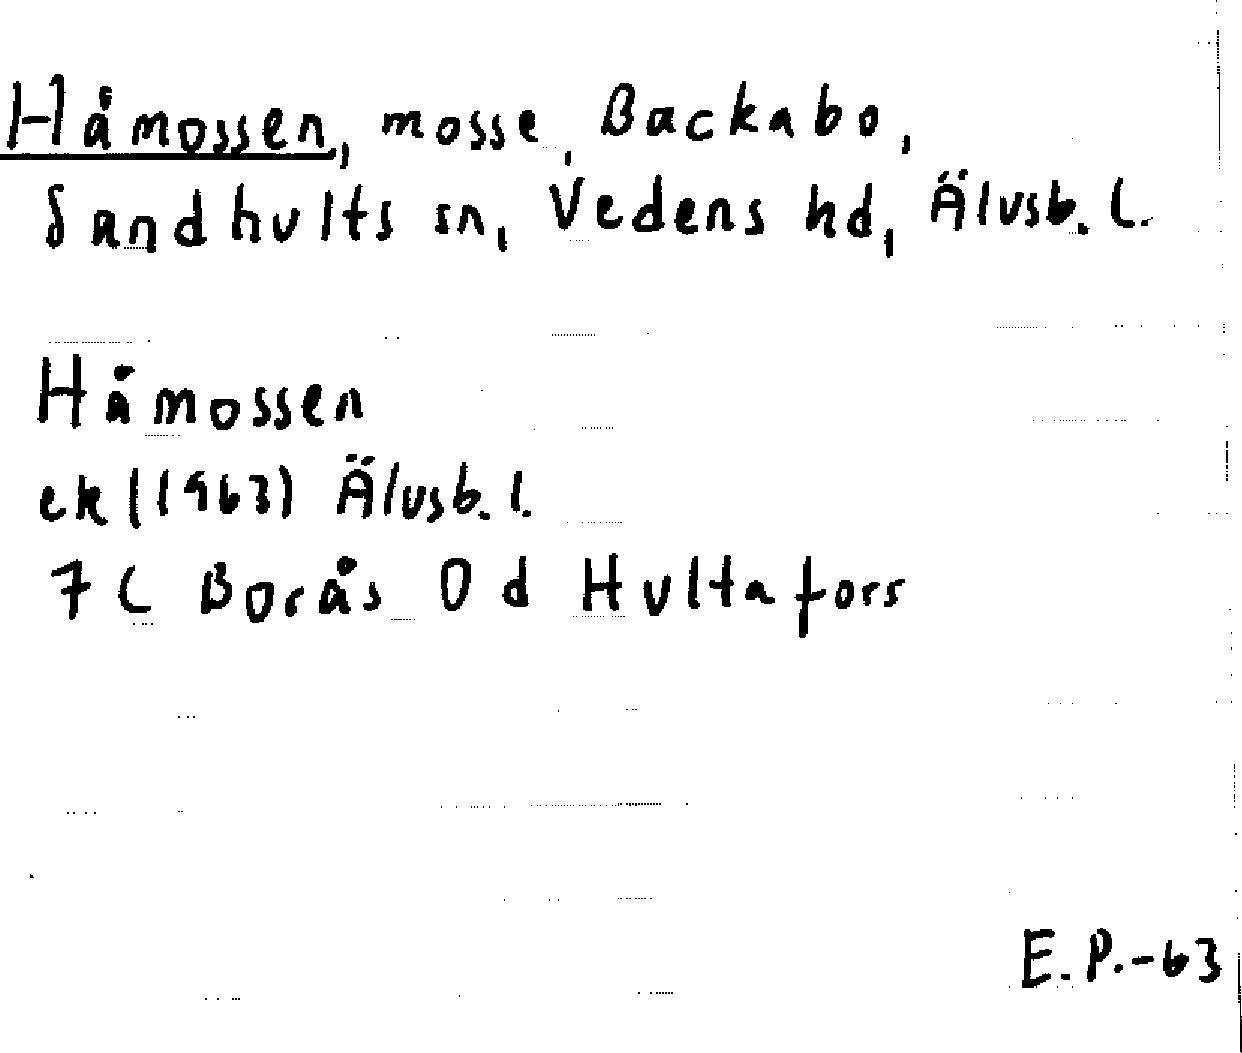 Håmossen, mosse, Backabo,
Sandhults sn, Vedens hd, Älvsb. l.
Håmossen
ek (1963) Älvsb. l.
7 C Borås 0 d Hultafors
E. P. -63